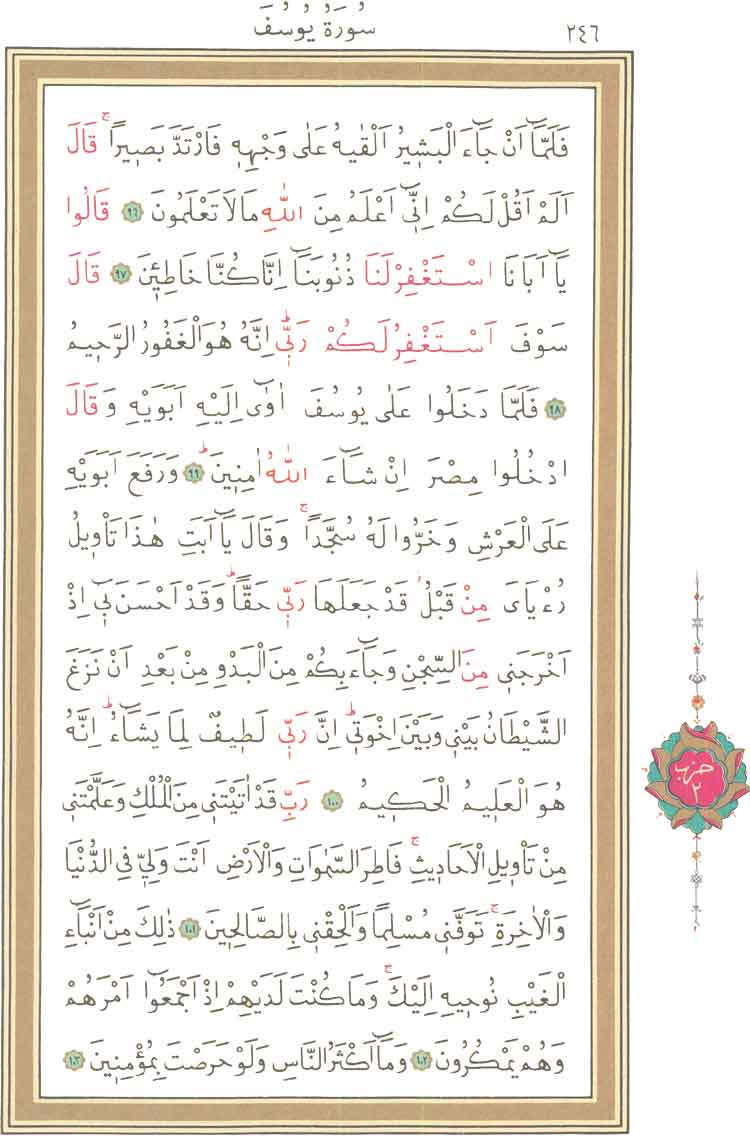 سُورَةُ يُوسُفَ ٢٤٦
فَلَمَّٓا اَنْ جَٓاءَ الْبَش۪يرُ اَلْقٰيهُ عَلٰى وَجْهِه۪ فَارْتَدَّ بَص۪يرًاۚ قَالَ
اَلَمْ اَقُلْ لَكُمْ اِنّ۪ٓي اَعْلَمُ مِنَ اللّٰهِ مَا لَا تَعْلَمُونَ ﴿٩٦﴾ قَالُوا
يَٓا اَبَانَا اسْتَغْفِرْ لَنَا ذُنُوبَنَٓا اِنَّا كُنَّا خَاطِـ۪ٔينَ ﴿٩٧﴾ قَالَ
سَوْفَ اَسْتَغْفِرُ لَكُمْ رَبّ۪يۜ اِنَّهُ هُوَ الْغَفُورُ الرَّح۪يمُ
﴿٩٨﴾ فَلَمَّا دَخَلُوا عَلٰى يُوسُفَ اٰوٰٓى اِلَيْهِ اَبَوَيْهِ وَقَالَ
ادْخُلُوا مِصْرَ اِنْ شَٓاءَ اللّٰهُ اٰمِن۪ينَۜ ﴿٩٩﴾ وَرَفَعَ اَبَوَيْهِ
عَلَى الْعَرْشِ وَخَرُّوا لَهُ سُجَّدًاۚ وَقَالَ يَٓا اَبَتِ هٰذَا تَأْو۪يلُ
رُءْيَايَ مِنْ قَبْلُۘ قَدْ جَعَلَهَا رَبّ۪ي حَقًّاۜ وَقَدْ اَحْسَنَ ب۪ٓي اِذْ
اَخْرَجَن۪ي مِنَ السِّجْنِ وَجَٓاءَ بِكُمْ مِنَ الْبَدْوِ مِنْ بَعْدِ اَنْ نَزَغَ
الشَّيْطَانُ بَيْن۪ي وَبَيْنَ اِخْوَت۪يۜ اِنَّ رَبّ۪ي لَط۪يفٌ لِمَا يَشَٓاءُۜ اِنَّهُ
هُوَ الْعَل۪يمُ الْحَك۪يمُ ﴿١٠٠﴾ رَبِّ قَدْ اٰتَيْتَن۪ي مِنَ الْمُلْكِ وَعَلَّمْتَن۪ي
مِنْ تَأْو۪يلِ الْاَحَاد۪يثِۚ فَاطِرَ السَّمٰوَاتِ وَالْاَرْضِ اَنْتَ وَلِيّ۪ فِي الدُّنْيَا
وَالْاٰخِرَةِۚ تَوَفَّن۪ي مُسْلِمًا وَاَلْحِقْن۪ي بِالصَّالِح۪ينَ ﴿١٠١﴾ ذٰلِكَ مِنْ اَنْبَٓاءِ
الْغَيْبِ نُوح۪يهِ اِلَيْكَۚ وَمَا كُنْتَ لَدَيْهِمْ اِذْ اَجْمَعُٓوا اَمْرَهُمْ
وَهُمْ يَمْكُرُونَ ﴿١٠٢﴾ وَمَٓا اَكْثَرُ النَّاسِ وَلَوْ حَرَصْتَ بِمُؤْمِن۪ينَ ﴿١٠٣﴾
حزب
٢